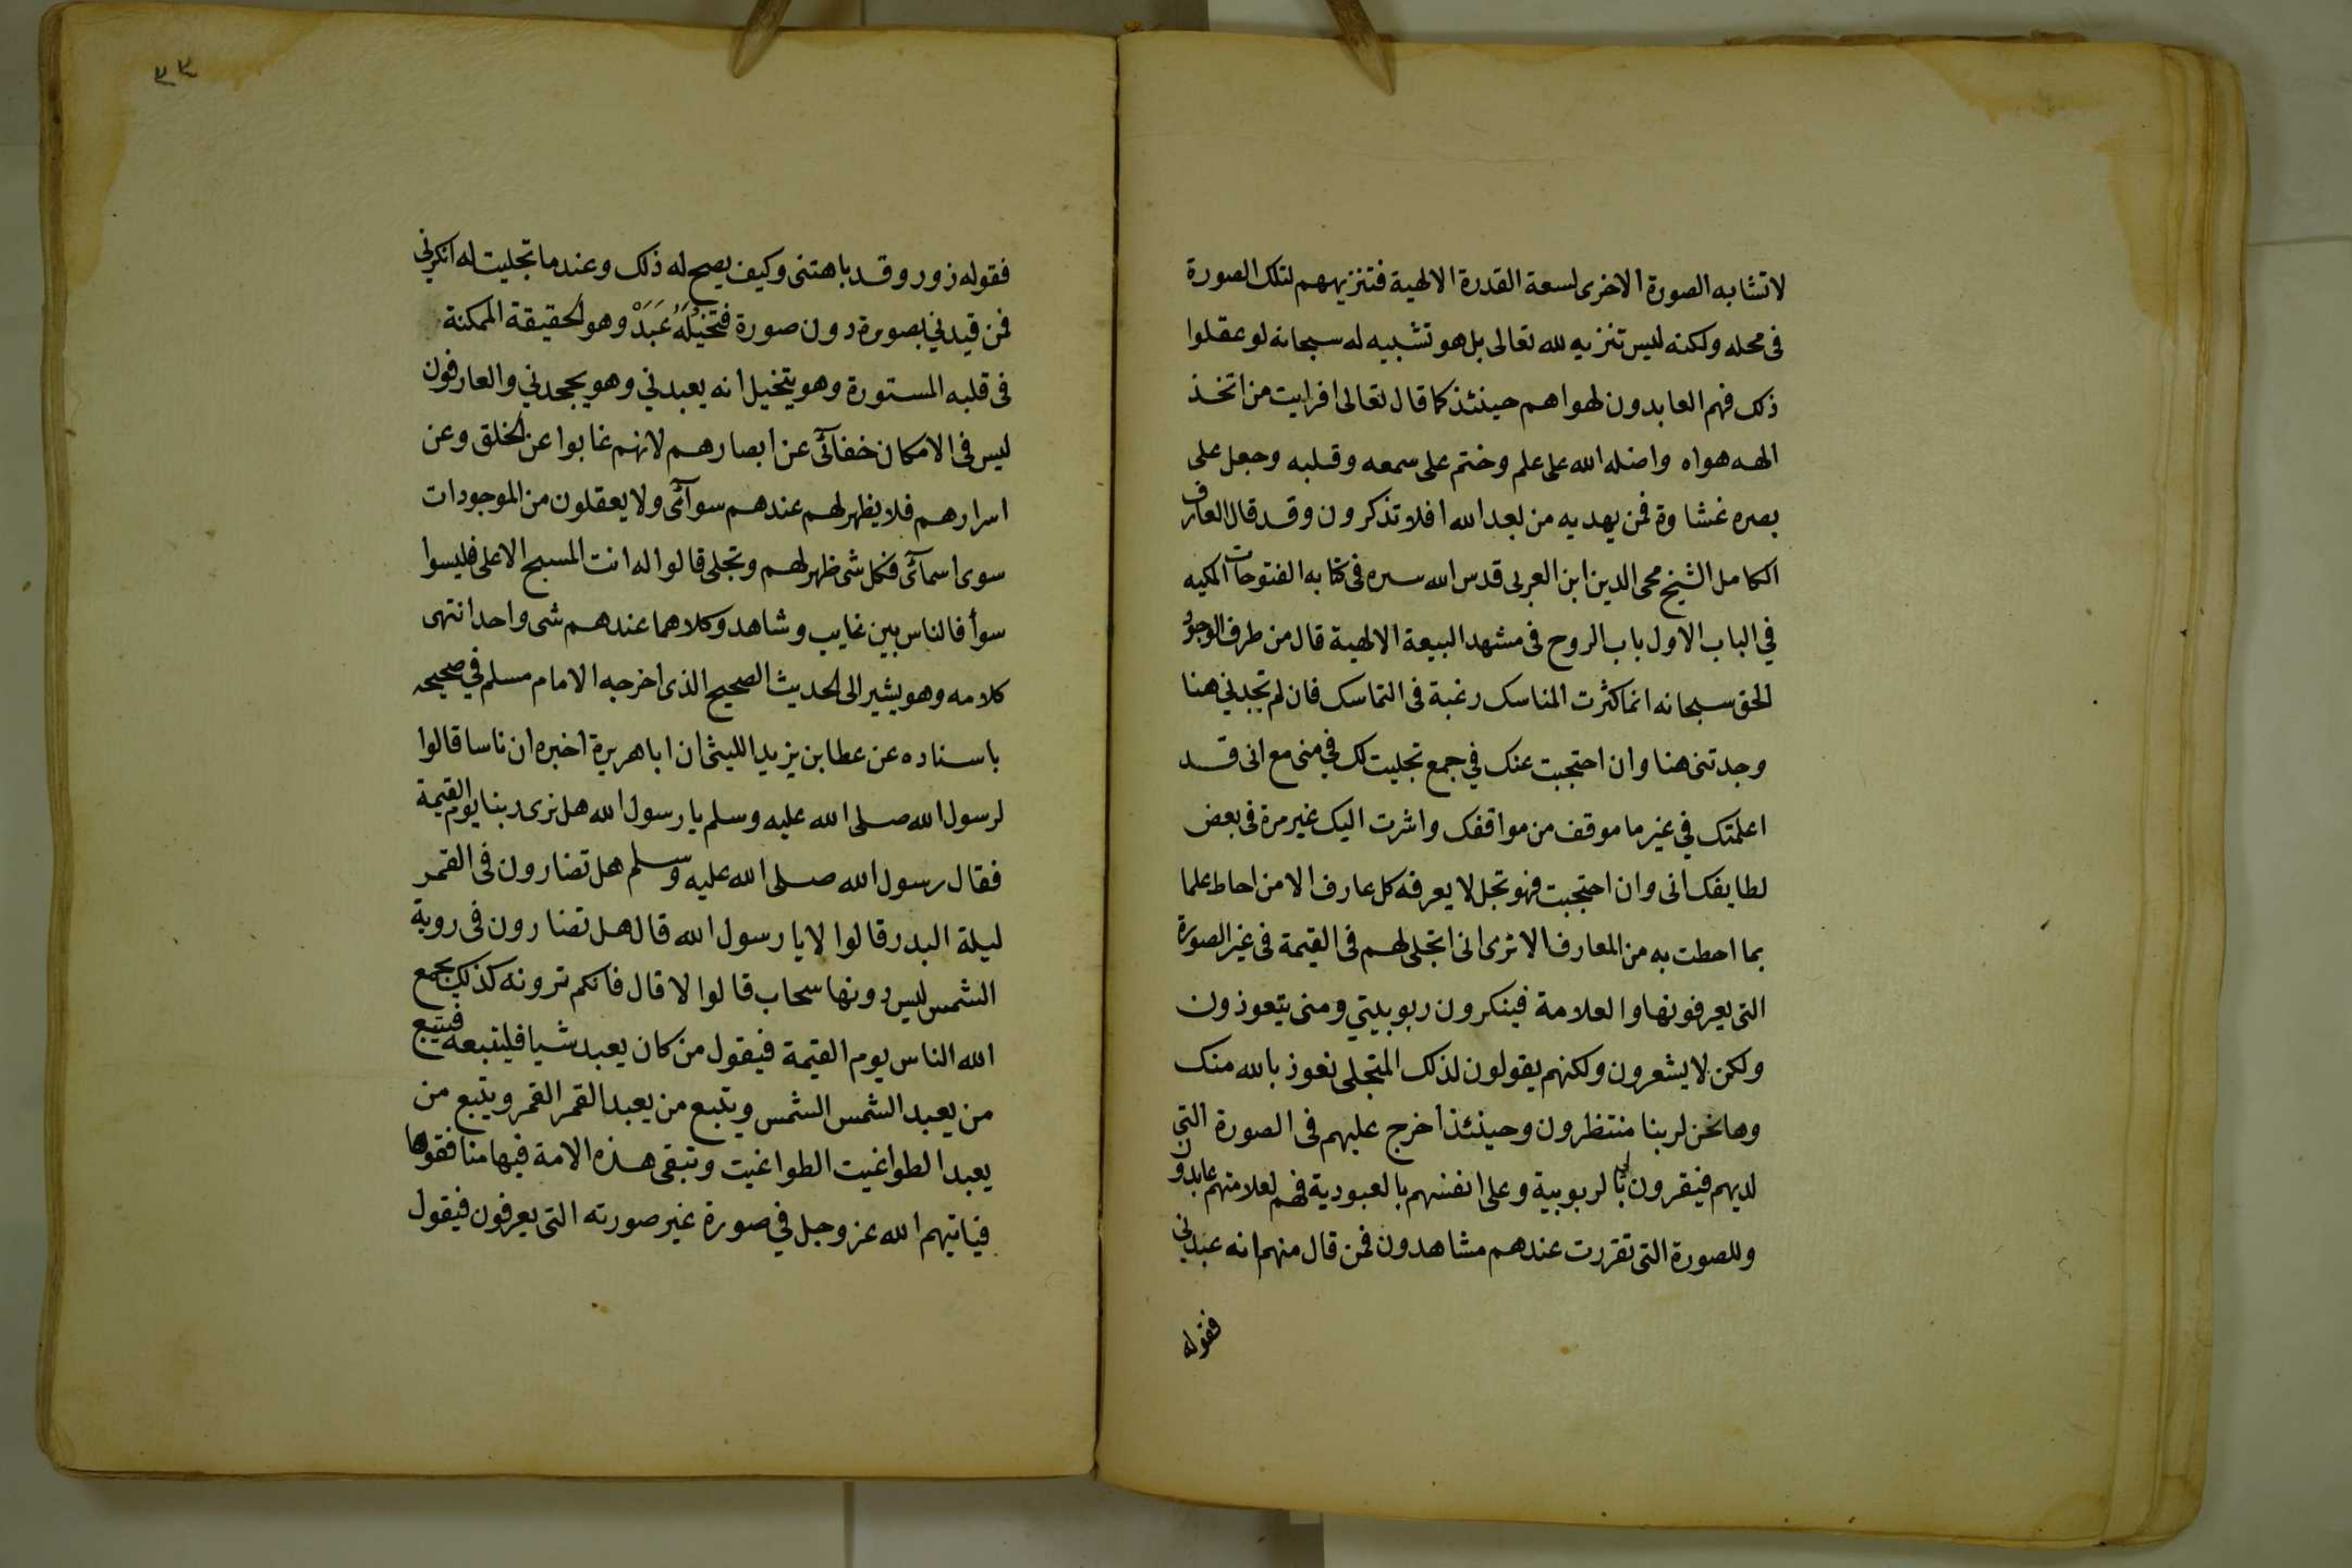 لا تشابه الصورة الاخرى لسعة القدرة الالهية فتنزيههم لتلك الصورة
فى محله ولكنه ليس تنزيه لله تعالى بل هو تشبيه له سبحانه لو عقلوا
ذلك فهم العابدون لهواهم حينئذ كما قال تعالى افرايت من اتخذ
الهه هواه واضله الله على علم وختم على سمعه وقلبه وجعل على
بصره غشاوة فمن يهديه من بعد الله افلا تذكرون وقد قال العارف
الكامل الشيخ محى الدين ابن العربى قدس الله سره فى كتابه الفتوحات المكيه
في الباب الاول باب الروح فى مشهد البيعة الالهية قال من طرف الوجود
الحق سبحانه انما كثرت المناسك رغبة فى التماسك فان لم تجدني هنا
وجدتنى هنا وان احتجبت عنك في جمع تجليت لك في منى مع انى قد
اعلمتك في غير ما موقف من مواقفك واشرت اليك غير مرة فى بعض
لطايفك انى وان احتجبت فهو تجل لا يعرفه كل عارف الا من احاط علما
بما احطت به من المعارف الا ترى انى اتجلى لهم فى القيمة فى غير الصورة
التى يعرفونها والعلامة فينكرون ربوبيتي ومنى يتعوذون
ولكن لا يشعرون ولكنهم يقولون لذلك المتجلى نعوذ بالله منك
وها نحن لربنا منتظرون وحينئذ اخرج عليهم فى الصورة التي
لديهم فيقرون لى بالربوبية وعلى انفسهم بالعبودية فهم لعلامتهم عابدون
وللصورة التى تقررت عندهم مشاهدون فمن قال منهم انه عبدني
فقوله
٣٣
فقوله زور وقد باهتنى وكيف يصح له ذلك وعندما تجليت له انكرني
فمن قيدني بصورة دون صورة فتخيله عبد وهو الحقيقة الممكنة
فى قلبه المستورة وهو يتخيل انه يعبدني وهو يجحدني والعارفون
ليس فى الامكان خفائى عن ابصارهم لانهم غابوا عن الخلق وعن
اسرارهم فلا يظهر لهم عندهم سوائى ولا يعقلون من الموجودات
سوى اسمائى فكل شى ظهر لهم وتجلى قالوا له انت المسبح الاعلى فليسوا
سوأ فالناس بين غايب وشاهد وكلاهما عندهم شى واحد انتهى
كلامه وهو يشير الى الحديث الصحيح الذى اخرجه الامام مسلم في صحيحه
باسناده عن عطا بن يزيد الليثى ان ابا هريرة اخبره ان ناسا قالوا
لرسول الله صلى الله عليه وسلم يا رسول الله هل نرى ربنا يوم القيمة
فقال رسول الله صلى الله عليه وسلم هل تضارون فى القمر
ليلة البدر قالوا لا يا رسول الله قال هل تضارون فى روية
الشمس ليس دونها سحاب قالوا لا قال فانكم ترونه كذلك يجمع
الله الناس يوم القيمة فيقول من كان يعبد شيا فليتبعه فيتبع
من يعبد الشمس الشمس ويتبع من يعبد القمر القمر ويتبع من
يعبد الطواغيت الطواغيت وتبقى هذه الامة فيها منافقوها
فياتيهم الله عز وجل في صورة غير صورته التى يعرفون فيقول